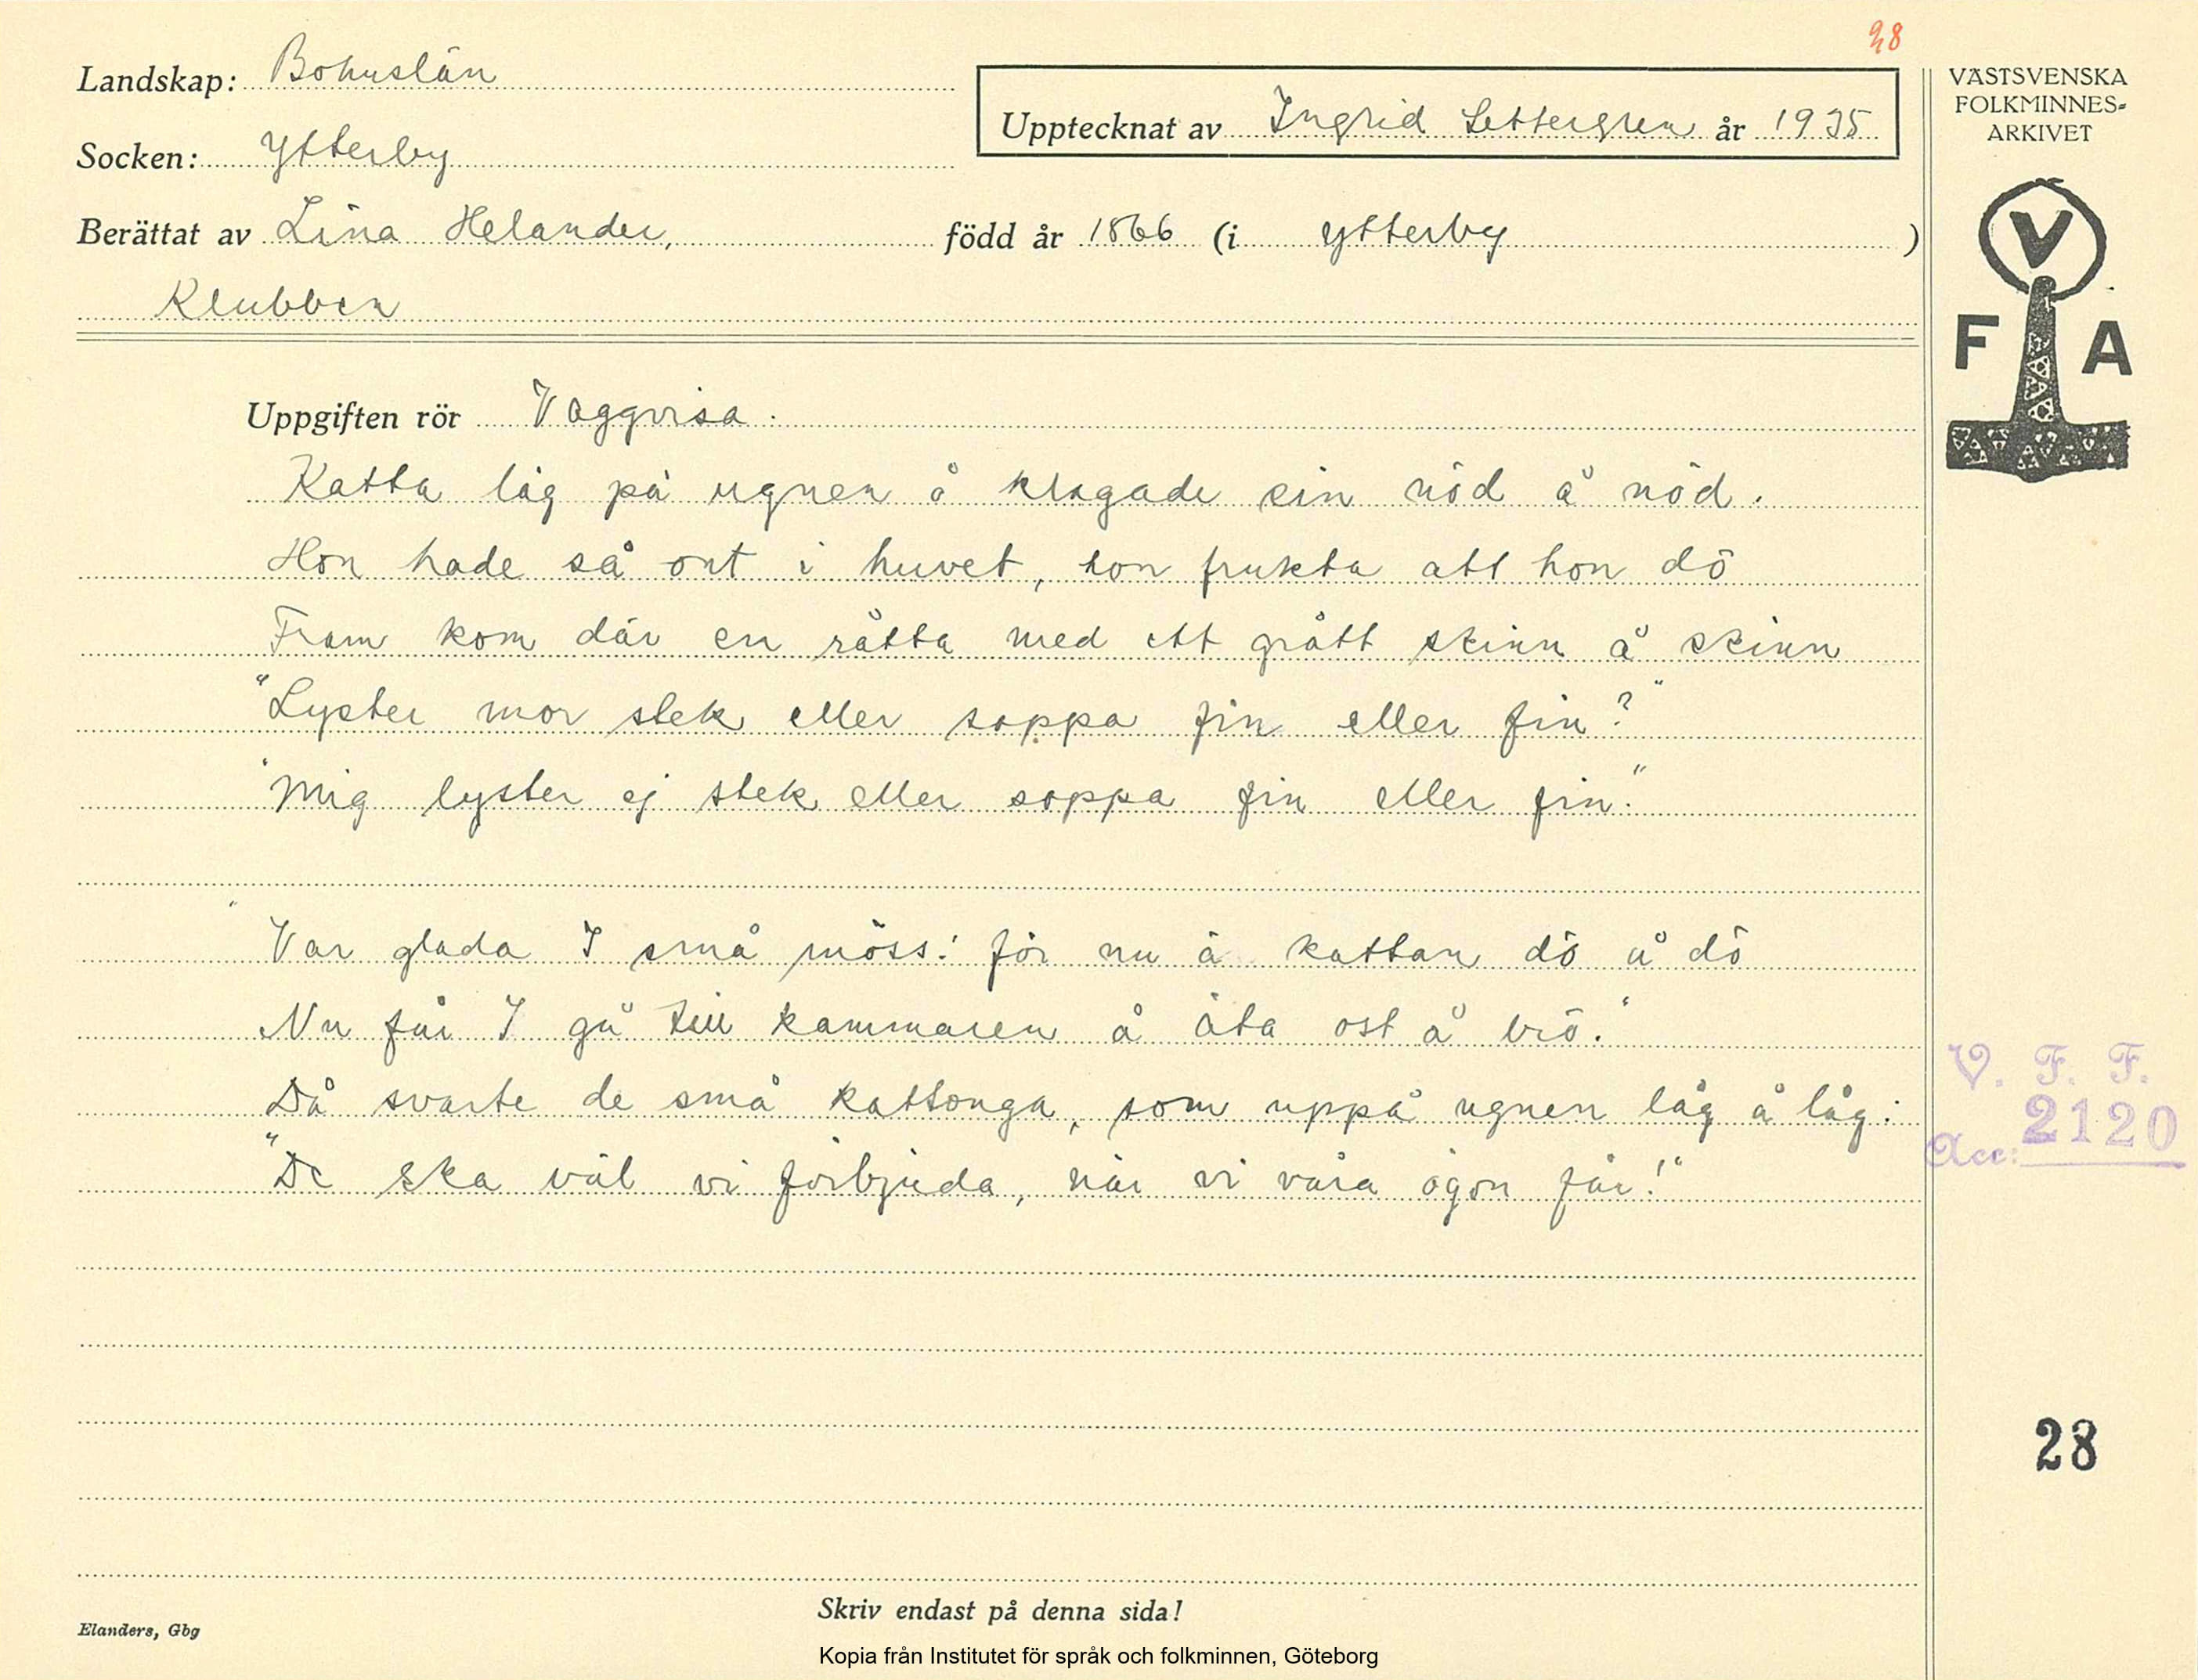 28
Landskap: Bohuslän
Upptecknat av Ingrid Settergren år 1935
Socken: Ytterby
Berättat av Lina Helander, född år 1866 (i Ytterby )
Klubben
Uppgiften rör Vaggvisa.
Katta låg på ugnen å klagade sin nöd å nöd.
Hon hade så ont i huvet, hon frukta att hon dö
Fram kom där en råtta med ett grått skinn å skinn
"Lyster mor stek eller soppa fin eller fin?"
"Mig lyster ej stek eller soppa fin eller fin."
"Var glada I små möss! för nu ä kattan dö å dö
Nu får I gå till kammaren å äta ost å brö."
Då svarte de små kattonga, som uppå ugnen låg å låg:
"De ska väl vi förbjuda, när vi våra ögon får!"
VÄSTSVENSKA
FOLKMINNES-
ARKIVET
V
F A
V. F. F.
Acc: 2120
28
Skriv endast på denna sida!
Elanders, Gbg
Kopia från Institutet för språk och folkminnen, Göteborg